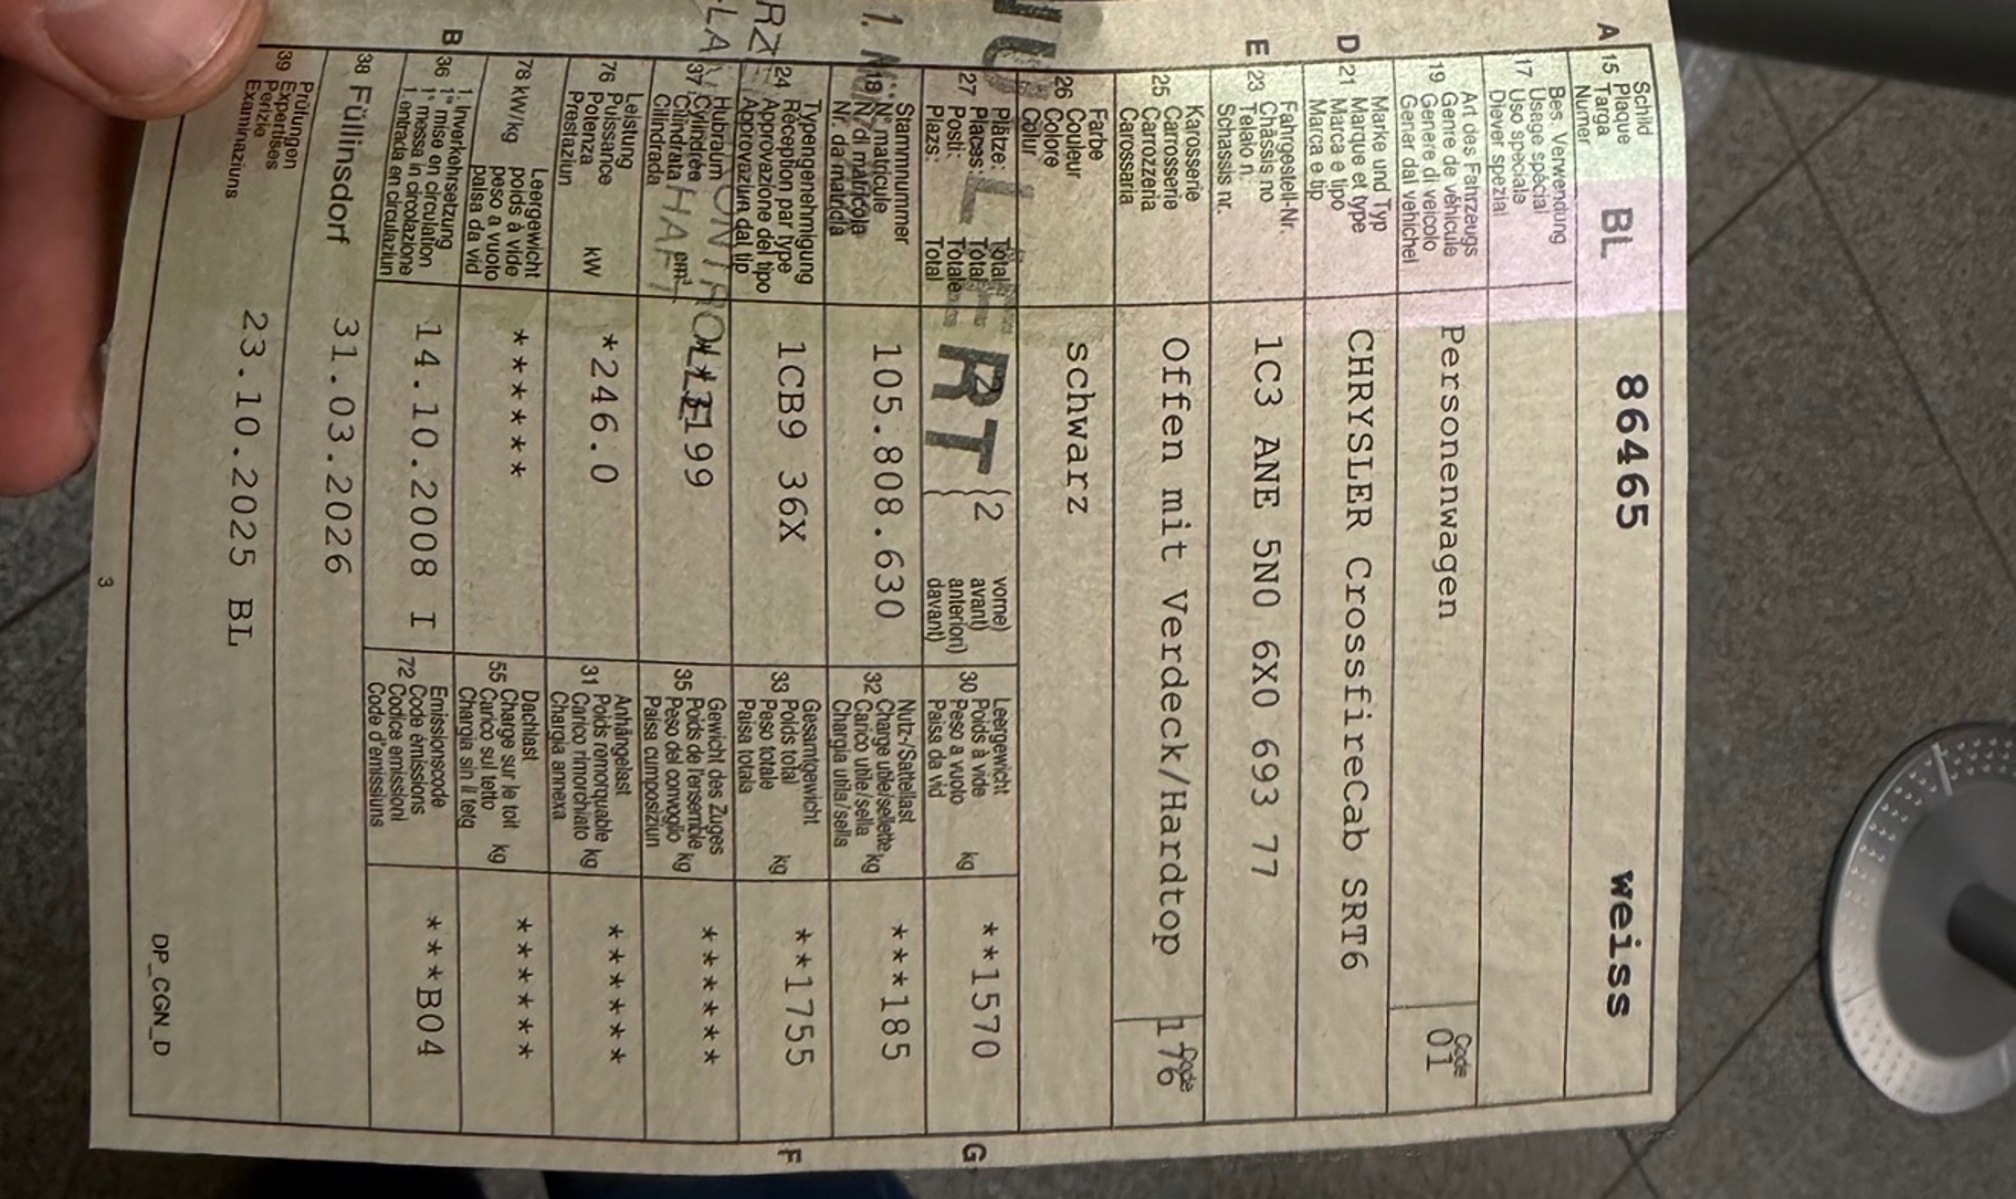 A 15 Schild Plaque Targa Numer BL 86465 weiss
17 Bes. Verwendung Usage spécial Uso speciale Diever spezial
19 Art des Fahrzeugs Genre de véhicule Genere di veicolo Gener dal vehichel Personenwagen Code 01
D 21 Marke und Typ Marque et type Marca e tipo Marca e tip CHRYSLER CrossfireCab SRT6
E 23 Fahrgestell-Nr. Châssis no Telaio n. Schassis nr. 1C3 ANE 5N0 6X0 693 77
25 Karosserie Carrosserie Carrozzeria Carossaria Offen mit Verdeck/Hardtop Code 176
26 Farbe Couleur Colore Colur schwarz
27 Plätze: Places: Posti: Plazs: Total Total Totale Total 2 {2 vorne) avant) anteriori) davant)
30 Leergewicht Poids à vide Peso a vuoto Paisa da vid kg **1570 G
18 Stammnummer N° matricule N. di matricola Nr. da matricla 105.808.630
32 Nutz-/Sattellast Charge utile/sellette Carico utile/sella Chargia utila/sella kg ***185
24 Typengenehmigung Réception par type Approvazione del tipo Approvaziun dal tip 1CB9 36X
33 Gesamtgewicht Poids total Peso totale Paisa totala kg **1755 F
37 Hubraum Cylindrée Cilindrata Cilindrada cm³ 3199
35 Gewicht des Zuges Poids de l'ensemble Peso del convoglio Paisa cumposiziun kg ******
76 Leistung Puissance Potenza Prestaziun kW *246.0
31 Anhängelast Poids remorquable Carico rimorchiato Chargia annexa kg ******
78 kW/kg Leergewicht poids à vide peso a vuoto paisa da vid ******
55 Dachlast Charge sur le toit Carico sul tetto Chargia sin il tetg kg ******
B 36 1. Inverkehrsetzung 1re mise en circulation 1a messa in circolazione 1. entrada en circulaziun 14.10.2008 I
72 Emissionscode Code émissions Codice emissioni Code d'emissiuns ***B04
38 Füllinsdorf 31.03.2026
39 Prüfungen Expertises Perizie Examinaziuns 23.10.2025 BL
3
DP_CGN_D